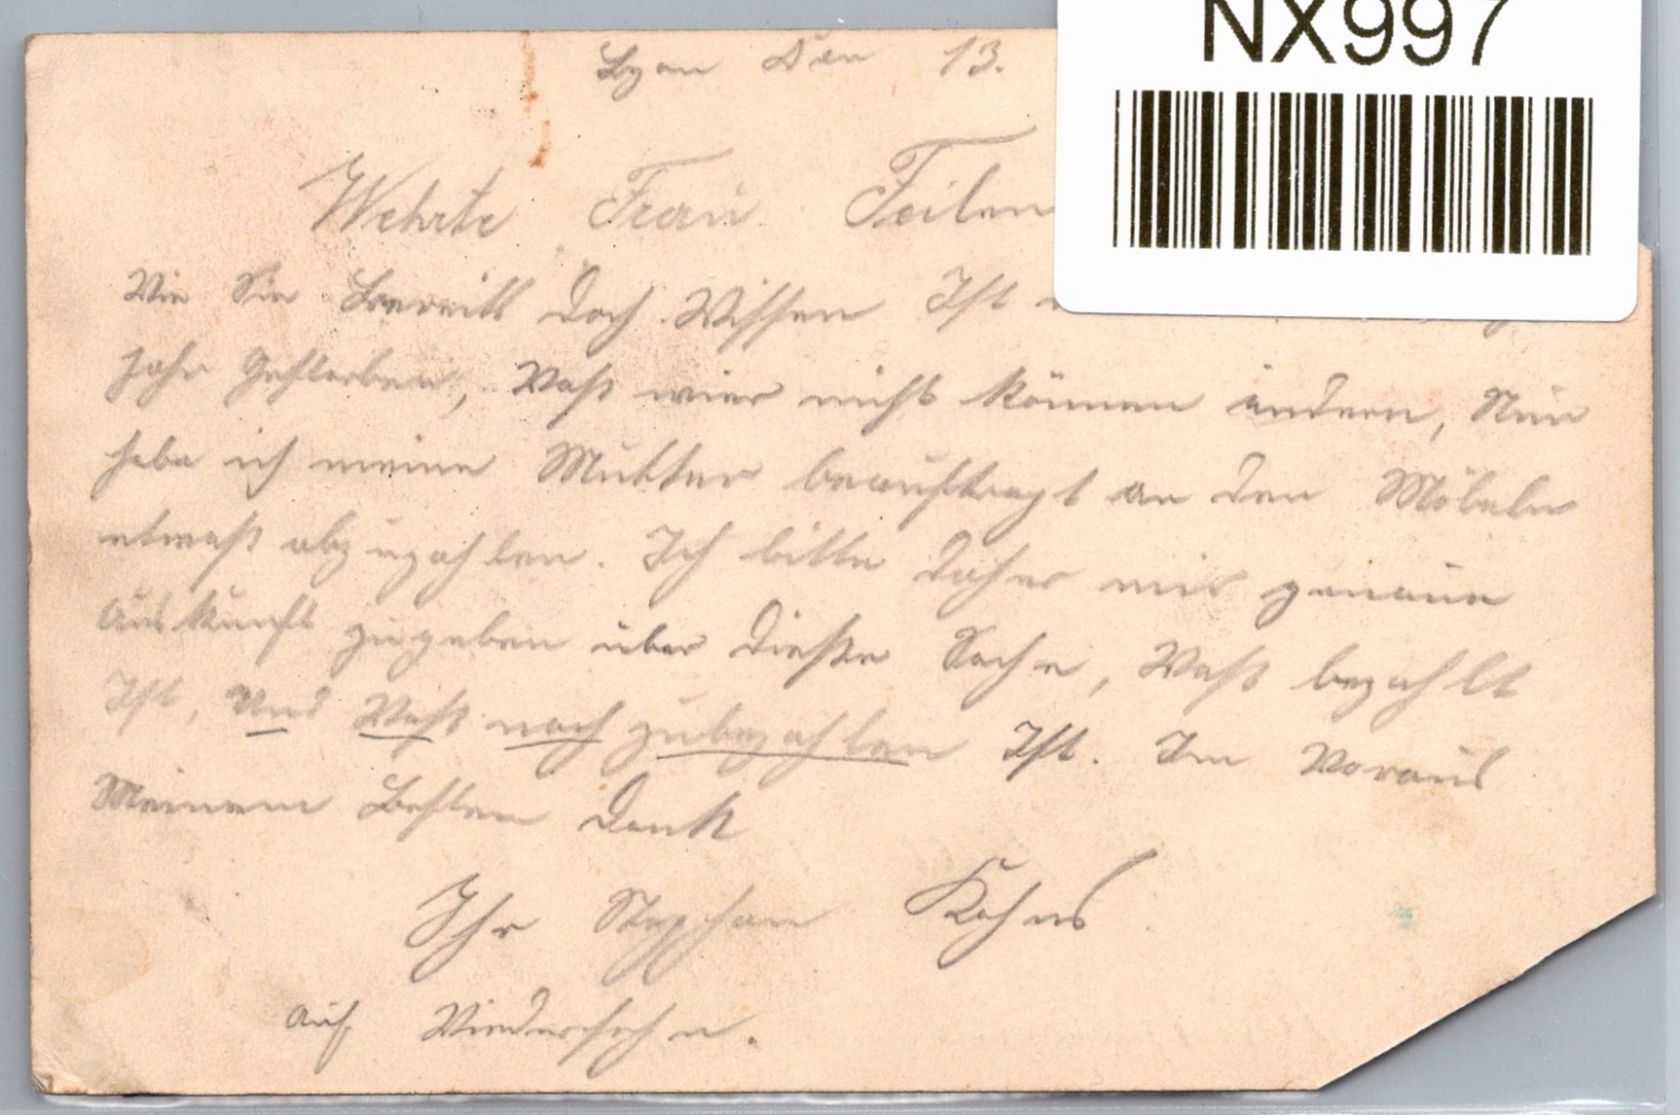 NX997
Lyon Den 13.
Wehrte Frau Feilen
Wie Sie Bereits Doch Wissen Ist
Jahr Gestorben, Waß wier nicht können ändern, Nun
habe ich meine Mutter beauftragt an den Möbeln
etwaß abzuzahlen. Ich bitte Daher mir genaue
Auskunft zugeben über Dieße Sache, Waß bezahlt
Ist, Und Waß noch zubezahlen Ist. Im Voraus
Meinem Besten Dank
Ihr Stephan Kohns
auf Wiedersehn.